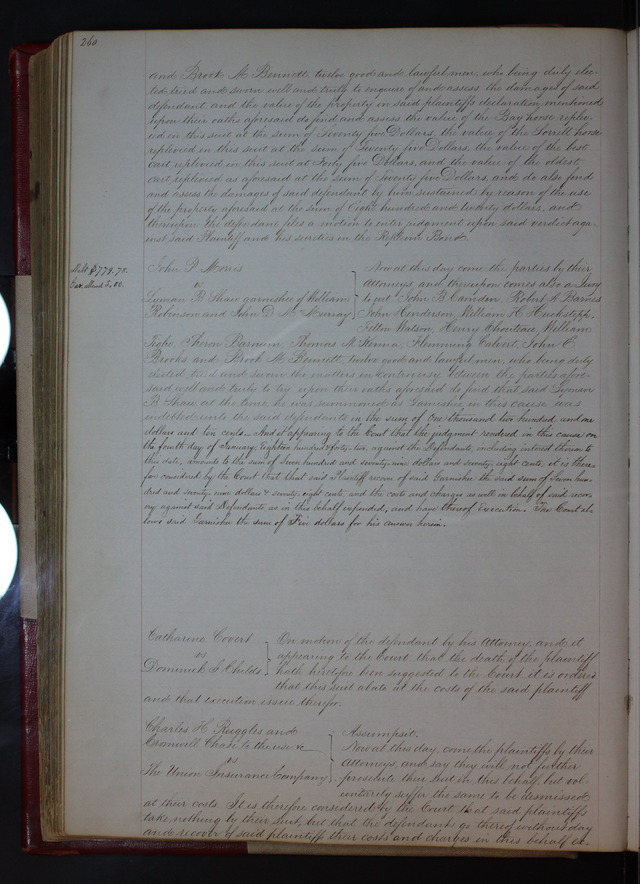 260
and Brook M Bennett, twelve good and lawful men, who being duly elec-
ted, tried and sworn well and truly to enquire of and assess the damages of said
defendant, and the value of the property in said plaintiffs declaration mentioned
upon their oaths aforesaid do find and assess the value of the Bay horse replev-
ied in this suit at the sum of Seventy five Dollars, the value of the Sorrell horse
replevied in this suit at the sum of Seventy five Dollars, the value of the best
cart replevied in this suit at Forty five Dollars, and the value of the oldest
cart replevied as aforesaid at the sum of Twenty five Dollars, and do also find
and assess the damages of said defendant by him sustained by reason of the use
of the property aforesaid at the sum of Eight hundred and twenty dollars, and
thereupon the defendant files a motion to enter judgment upon said verdict aga-
inst said Plaintiff and his sureties in the Replevin Bond
Debt $779.78.
Gar. allowed 5.00.
John D
vs
Lyman B Shaw garnishee of William
Robinson and John D McMurray
Now at this day come the parties by their
Attorneys, and thereupon comes also a Jury
to wit: John B Camden, Robert A Barnes
John Henderson, William H Huckstepp,
Watson, Henry Chouteau, William
Tighe, Theron Barnum, Thomas M Kenna, Flemming Calvert, John C.
Brooks and Brook M. Bennett, twelve good and lawful men, who being duly
elected, tried and sworn the matters in controversy between the parties afore-
said well and truly to try upon their oaths aforesaid do find that said Lyman
B Shaw at the time he was summoned as Garnishee in this cause was
indebted unto the said defendants in the sum of One thousand two hundred and one
dollars and ten cents. And it appearing to the Court that the judgment rendered in this cause on
the fourth day of January, eighteen hundred & forty-two, against the Defendants, including interest thereon to
this date, amounts to the sum of Seven hundred and seventy-nine dollars and seventy-eight cents, it is there-
fore considered by the Court that said Plaintiff recover of said Garnishee the said sum of Seven hun-
dred and seventy nine dollars & seventy-eight cents and the costs and charges as well in behalf of said recov-
ery against said Defendants as in this behalf expended, and have thereof execution. The Court al-
lows said Garnishee the sum of Five dollars for his answer herein.
Catharine Covert
vs
Dominick S Childs
On motion of the defendant by his Attorney and it
appearing to the Court that the death of the plaintiff
hath heretofore been suggested to the Court, it is ordered
that this suit abate at the costs of the said plaintiff
and that execution issue therefor.
Charles H. Ruggles and
Cromwell Chase to the use &c
vs
The Union Insurance Company
Assumpsit.
Now at this day, come the plaintiffs by their
Attorneys, and say they will not further
prosecute their suit in this behalf but vol-
untarily suffer the same to be dismissed
at their costs. It is therefore considered by the Court that said plaintiffs
take nothing by their suit, but that the defendants go thereof without day
and recover of said plaintiffs their costs and charges in this behalf ex-